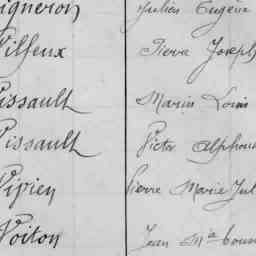 igneron Julien Eugène
Vilfeux Pierre Joseph
Vissault Marin Louis
Vissault Victor Alphons
Vivien Pierre Marie Jul
Voiton Jean Mie